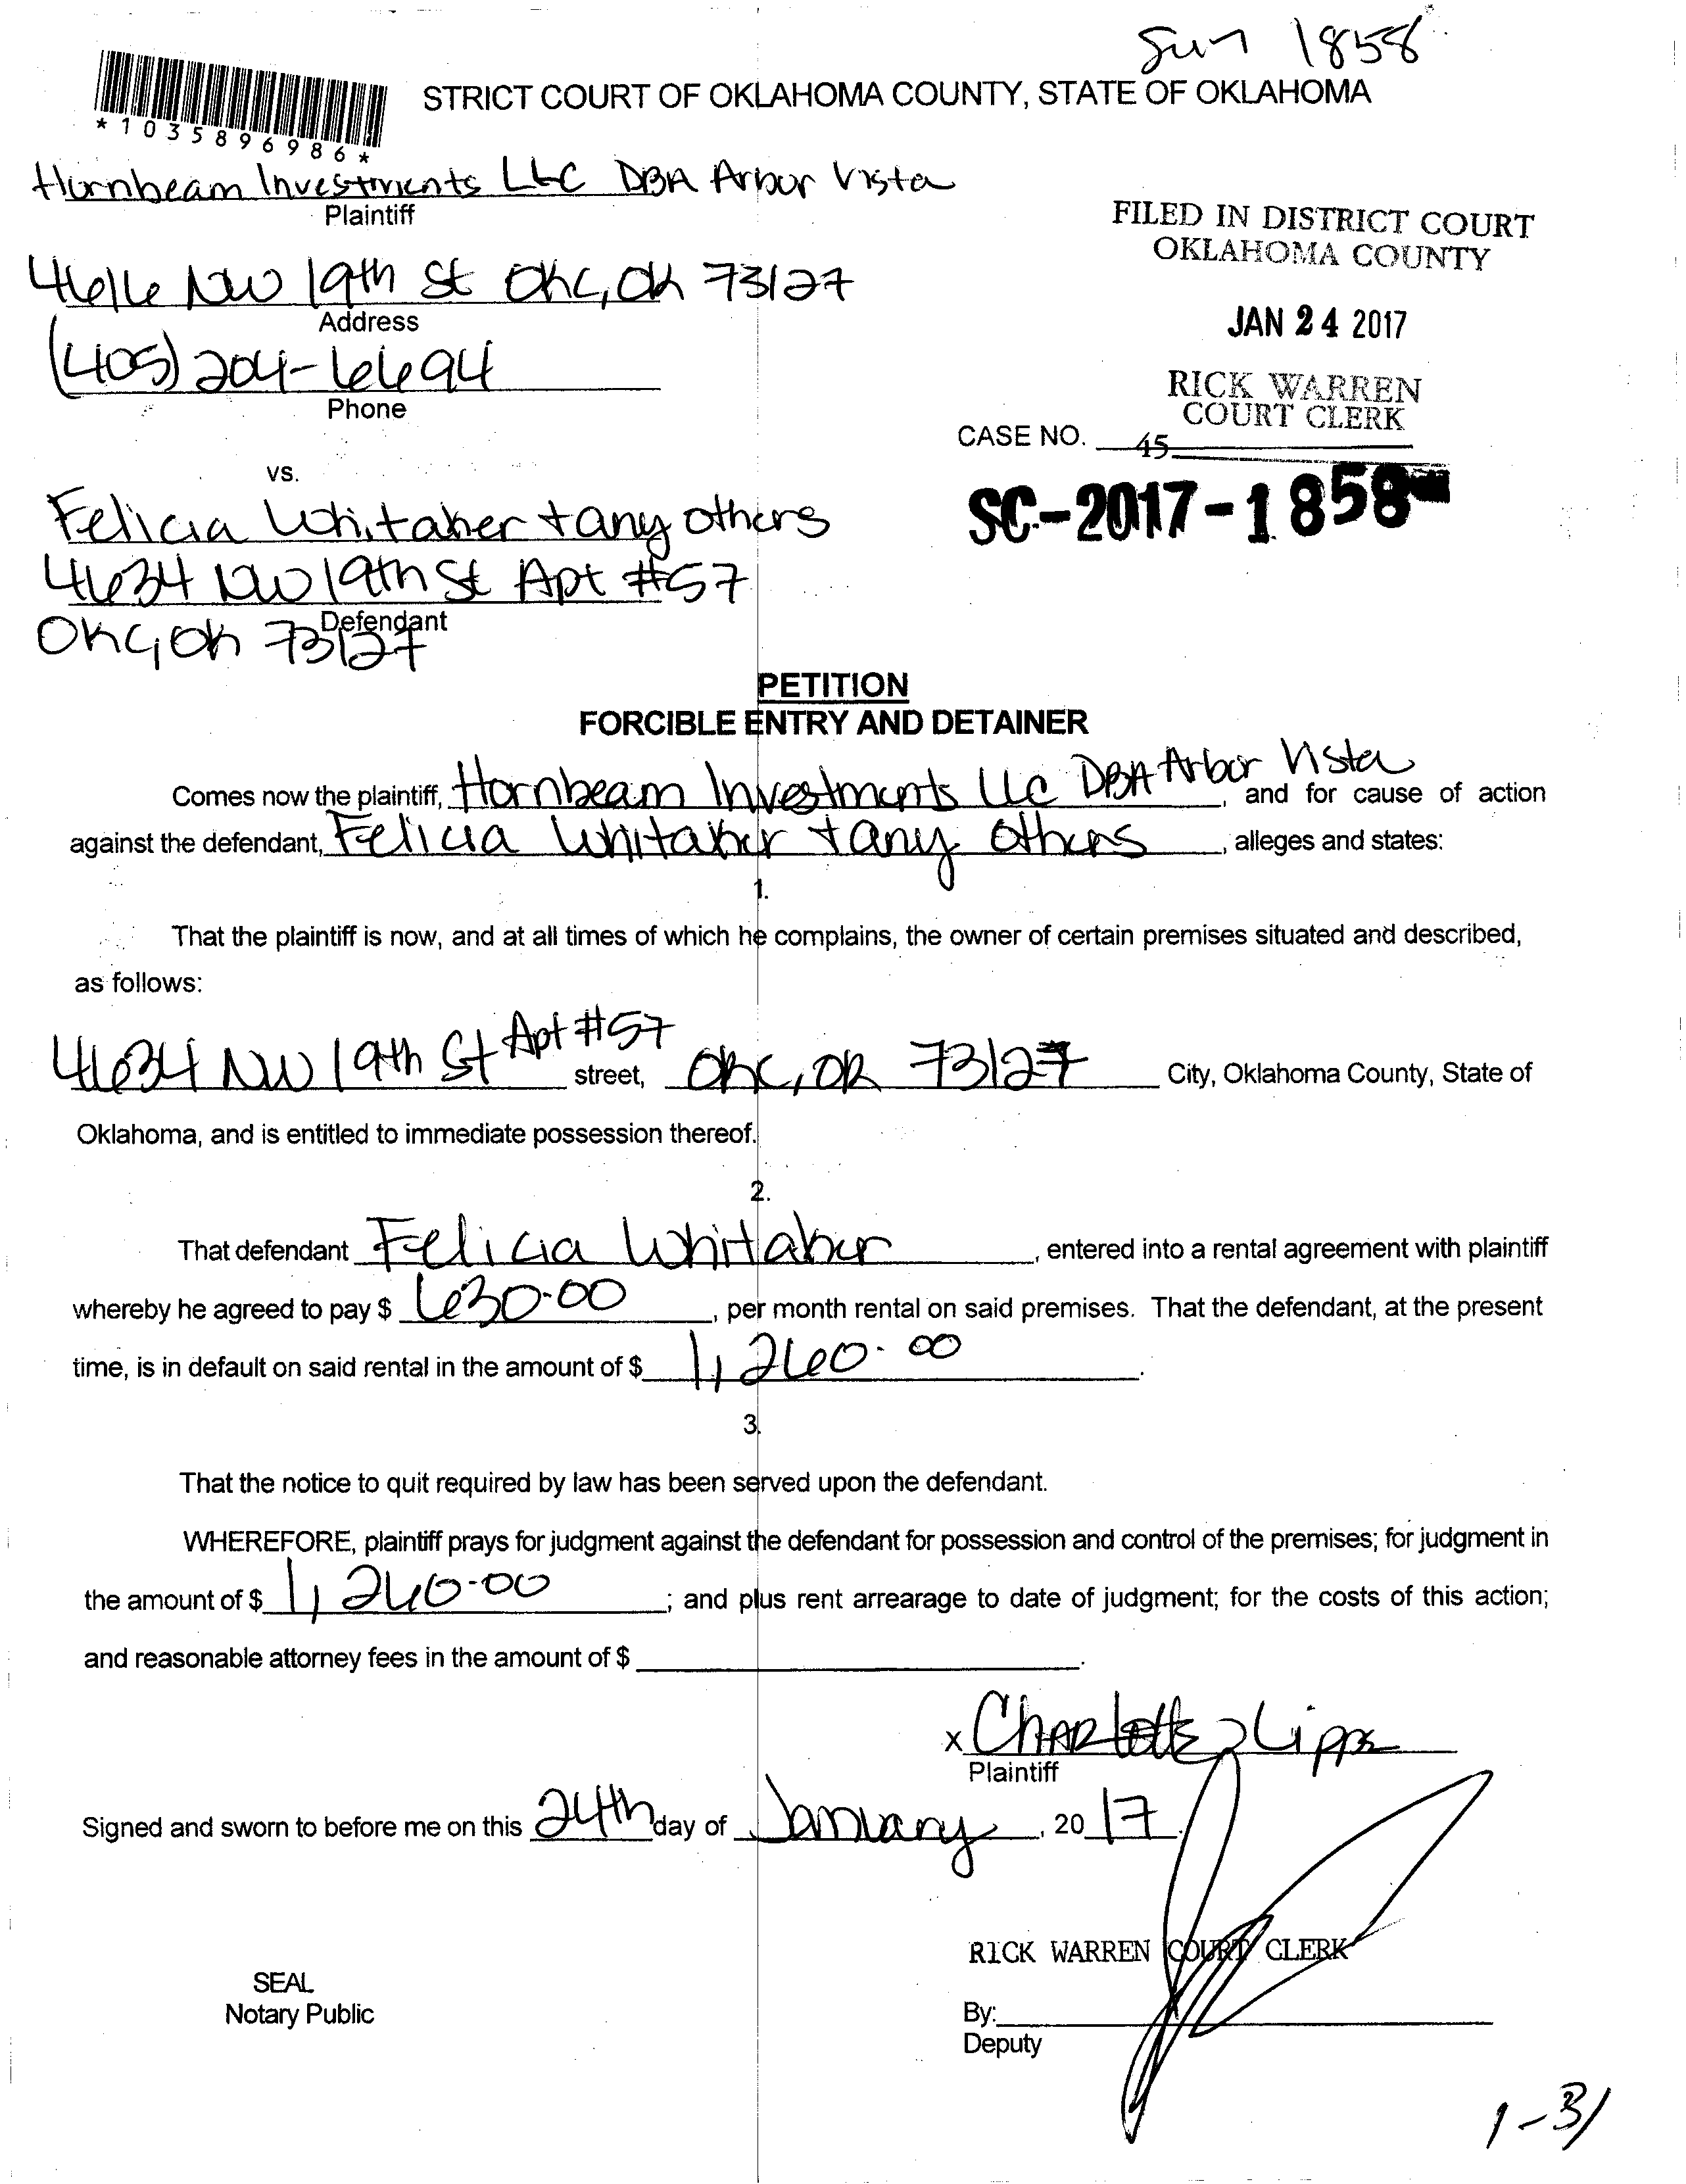 Sun 1858
STRICT COURT OF OKLAHOMA COUNTY, STATE OF OKLAHOMA
*1035896986*
Hornbeam Investments LLC DBA Arbor Vista
Plaintiff
FILED IN DISTRICT COURT
OKLAHOMA COUNTY
4616 NW 19th St OKC, OK 73127
Address
JAN 24 2017
(405) 204-6694
Phone
RICK WARREN
COURT CLERK
CASE NO. 45
vs.
SC-2017-1858
Felicia Whitaker + any others
4634 NW 19th St Apt #57
Defendant
OKC, OK 73127
PETITION
FORCIBLE ENTRY AND DETAINER
Comes now the plaintiff, Hornbeam Investments LLC DBA Arbor Vista, and for cause of action
against the defendant, Felicia Whitaker + any others, alleges and states:
1.
That the plaintiff is now, and at all times of which he complains, the owner of certain premises situated and described,
as follows:
4634 NW 19th St Apt #57 street, OKC, OK 73127 City, Oklahoma County, State of
Oklahoma, and is entitled to immediate possession thereof.
2.
That defendant Felicia Whitaker, entered into a rental agreement with plaintiff
whereby he agreed to pay $ 630.00, per month rental on said premises. That the defendant, at the present
time, is in default on said rental in the amount of $ 1,260.00.
3.
That the notice to quit required by law has been served upon the defendant.
WHEREFORE, plaintiff prays for judgment against the defendant for possession and control of the premises; for judgment in
the amount of $ 1,260.00; and plus rent arrearage to date of judgment; for the costs of this action;
and reasonable attorney fees in the amount of $ .
x Charlotte Lipps
Plaintiff
Signed and sworn to before me on this 24th day of January, 2017.
RICK WARREN COURT CLERK
SEAL
Notary Public
By:
Deputy
1-31